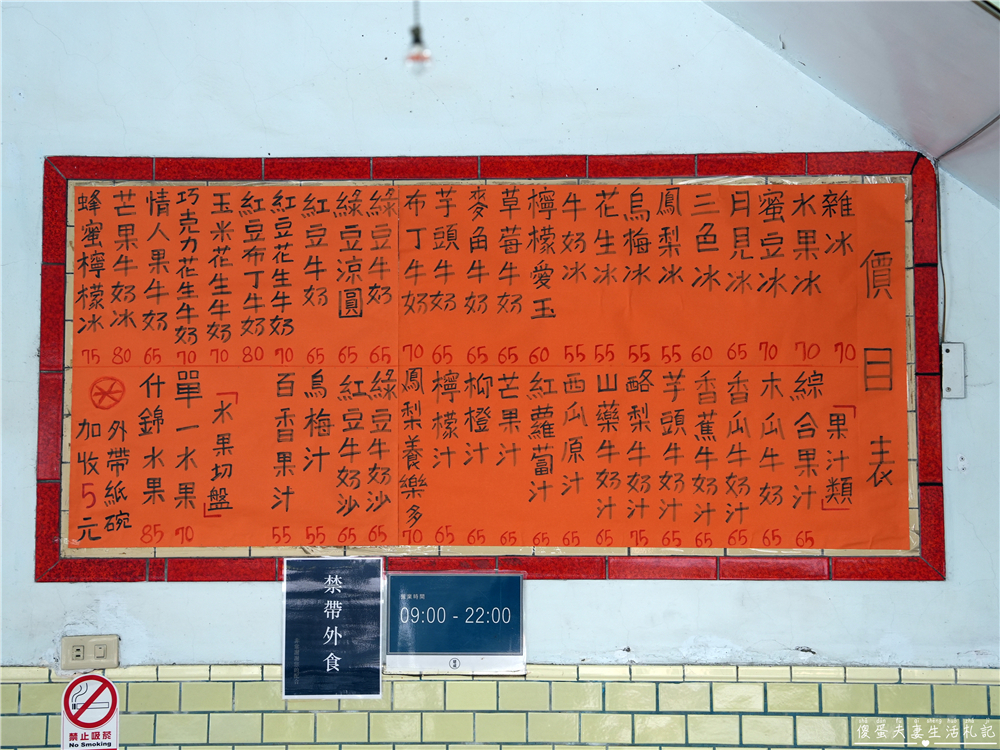 價目表
雜冰 70
水果冰 70
蜜豆冰 70
月見冰 65
三色冰 60
鳳梨冰 55
烏梅冰 55
花生冰 55
牛奶冰 55
檸檬愛玉 60
草莓牛奶 65
麥角牛奶 65
芋頭牛奶 65
布丁牛奶 70
綠豆牛奶 65
綠豆涼圓 65
紅豆牛奶 65
紅豆花生牛奶 70
紅豆布丁牛奶 80
玉米花生牛奶 70
巧克力花生牛奶 70
情人果牛奶 65
芒果牛奶冰 80
蜂蜜檸檬冰 75
「果汁類」
綜合果汁 65
木瓜牛奶 65
香瓜牛奶汁 65
香蕉牛奶汁 65
芋頭牛奶汁 65
酪梨牛奶汁 75
山藥牛奶汁 65
西瓜原汁 65
紅蘿蔔汁 65
芒果汁 65
柳橙汁 65
檸檬汁 65
鳳梨養樂多 70
綠豆牛奶沙 65
紅豆牛奶沙 65
烏梅汁 55
百香果汁 55
「水果切盤」
單一水果 70
什錦水果 85
外帶紙碗
加收5元
禁帶外食
營業時間
09:00 - 22:00
禁止吸菸
No Smoking
傻蛋夫妻生活札記